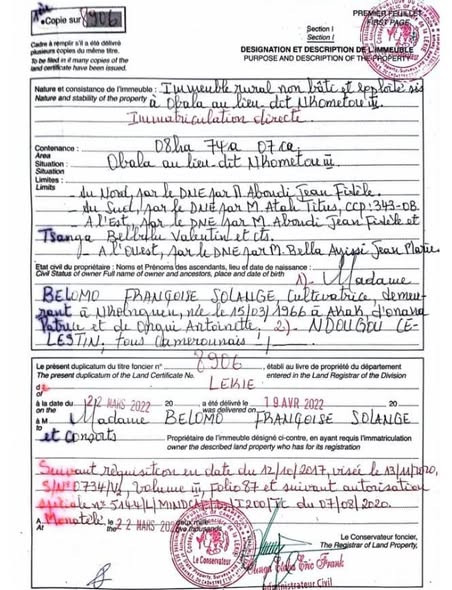 Copie sur 8906
Cadre à remplir s'il a été délivré
plusieurs copies du même titre.
To be filed in if many copies of the
land certificate have been issued.
PREMIER FEUILLET
FIRST PAGE
Section I
Section I
DESIGNATION ET DESCRIPTION DE L'IMMEUBLE
PURPOSE AND DESCRIPTION OF THE PROPERTY
Nature et consistance de l'immeuble : Immeuble rural non bâti et exploité sis
Nature and stability of the property à Obala au lieu-dit Nkometou III.
Immatriculation directe.
Contenance : 08ha 74a 07ca.
Area
Situation : Obala au lieu-dit Nkometou III.
Situation
Limites :
Limits
- du Nord, par le DNE par M. Aboudi Jean Fidèle.
- du Sud, par le DNE par M. Atah Titus, CCP: 343-OB.
- A l'Est, par le DNE par M. Aboudi Jean Fidèle et
Tsanga Valentin et cts.
- A l'Ouest, par le DNE par M. Bella Ayissi Jean Marie
Etat civil du propriétaire : Noms et Prénoms des ascendants, lieu et date de naissance :
Civil Status of owner Full name of owner and ancestors, place and date of birth 1)- Madame
BELOMO FRANÇOISE SOLANGE, Cultivatrice, demeu-
rant à née le 15/03/1966 à Akak, d'
et de Antoinette. 2)- NDOUGOU CE-
LESTIN, tous Camerounais !
Le présent duplicatum du titre foncier n° 8906, établi au livre de propriété du département
The present duplicatum of the Land Certificate No. entered in the Land Registrar of the Division
de LEKIE
of
à la date du 22 MARS 2022 20 , a été délivré le 19 AVR 2022 20
on the was delivered on
à M Madame BELOMO FRANÇOISE SOLANGE
to
et Consorts Propriétaire de l'immeuble désigné ci-contre, en ayant requis l'immatriculation
owner the described land property who has for its registration
Suivant réquisition en date du 12/10/2017, visée le 13/11/2020,
S/N° 0734/V2, Volume III, Folio 87 et suivant autorisation
spéciale n° 5144/L/MINDCAF/D/T200/TC du 07/08/2020.
A Monatélé, le 22 MARS 2022
At
Le Conservateur foncier,
The Registrar of Land Property,
Eric Frank
Administrateur Civil